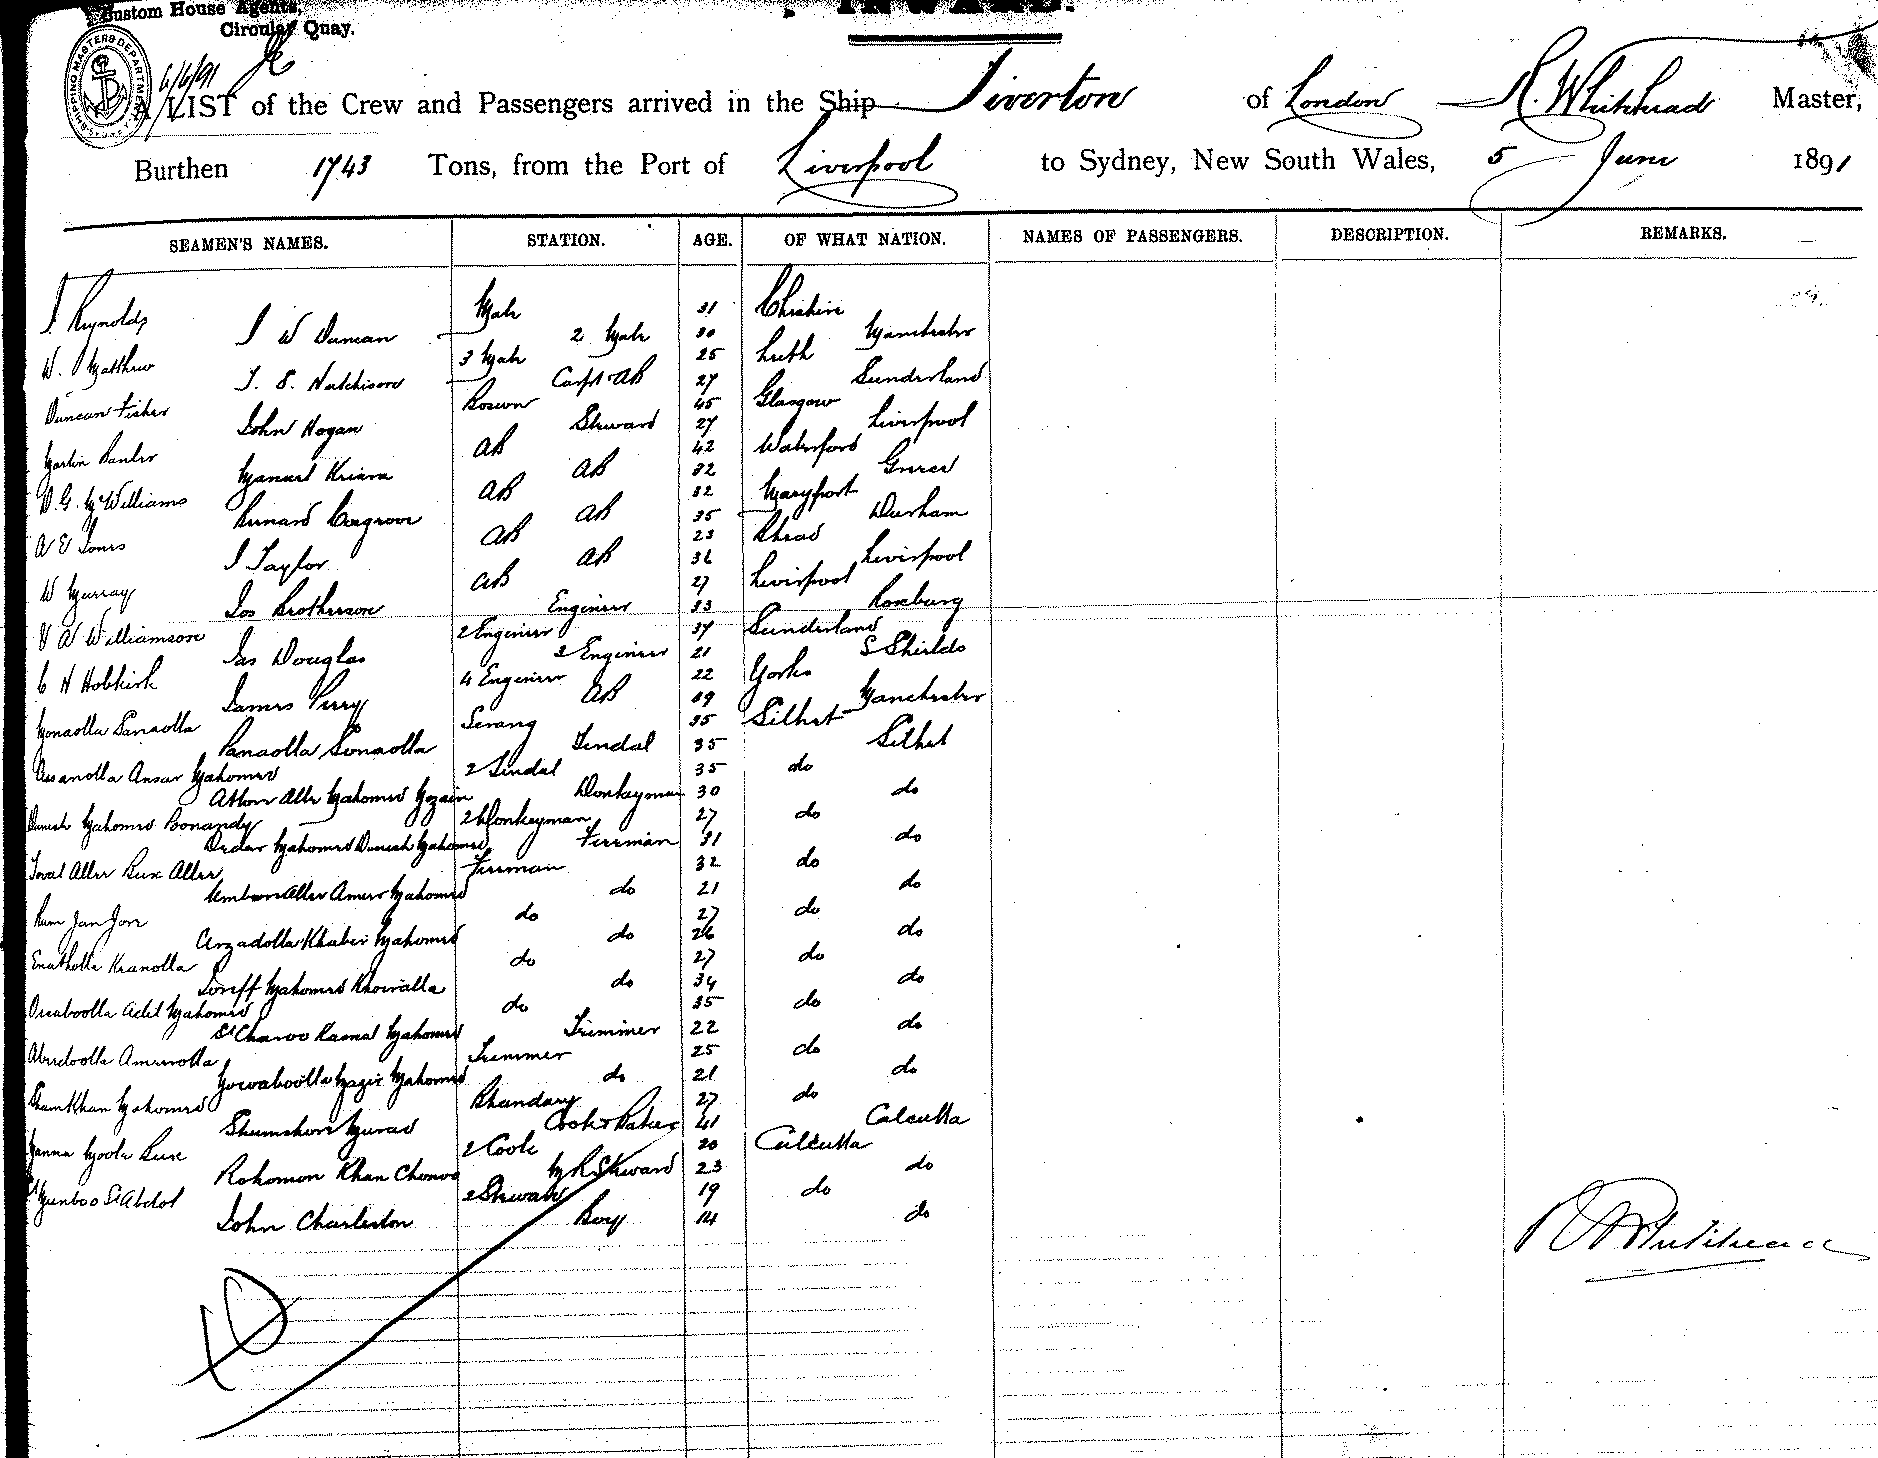 Custom House Agents,
Circular Quay.
INWARD.
SHIPPING MASTERS DEPARTMENT
6/6/91
A LIST of the Crew and Passengers arrived in the Ship Tiverton of London R. Whitehead Master,
Burthen 1743 Tons, from the Port of Liverpool to Sydney, New South Wales, 5 June 1891
SEAMEN'S NAMES. STATION. AGE. OF WHAT NATION. NAMES OF PASSENGERS. DESCRIPTION. REMARKS.
J. Reynolds Mate 31 Cheshire
J W Duncan 2 Mate 30 Manchester
W. Matthew 3 Mate 25 Leith
J. S. Hutchison Carpt. AB 27 Sunderland
Duncan Fisher Boswn 45 Glasgow
John Hogan Steward 27 Liverpool
Martin AB 42 Waterford
Manuel AB 32 Greece
D. G. McWilliams AB 32 Maryport
Bernard Cosgrove AB 35 Durham
A E Jones AB 23
J Taylor AB 36 Liverpool
W Murray AB 27 Liverpool
Jos Brotherson Engineer 33 Roxburg
V A Williamson 2 Engineer 37 Sunderland
Jas Douglas 3 Engineer 21 S Shields
C H Hobkirk 4 Engineer 22 Yorks
James Perry AB 19 Manchester
Monaolla Sanaolla Serang 35 Silhet
Panaolla Sonaolla Tindal 35 Silhet
Assanolla Ansar Mahomed 2 Tindal 35 do
Mahomed Donkeyman 30 do
Danish Mahomed Bonandy 2 Donkeyman 27 do
Mahomed Danish Mahomed Fireman 31 do
Bux Aller Fireman 32 do
Aller Ameer Mahomed do 21 do
Jan do 27 do
Arzadolla Khaber Mahomed do 26 do
Enatholla Kranolla do 27 do
Mahomed do 34 do
Adil Mahomed do 35 do
Kamal Mahomed Trimmer 22 do
Abedoolla Amenolla Trimmer 25 do
Mahomed do 21 do
Khan Mahomed Bhandary 27 do
Murad Cook & Baker 41 Calcutta
Buxe 2 Cook 20 Calcutta
Rohomon Khan M R Steward 23 do
Abdol 2 Steward 19 do
John Charleston Boy 14 do
R Whitehead